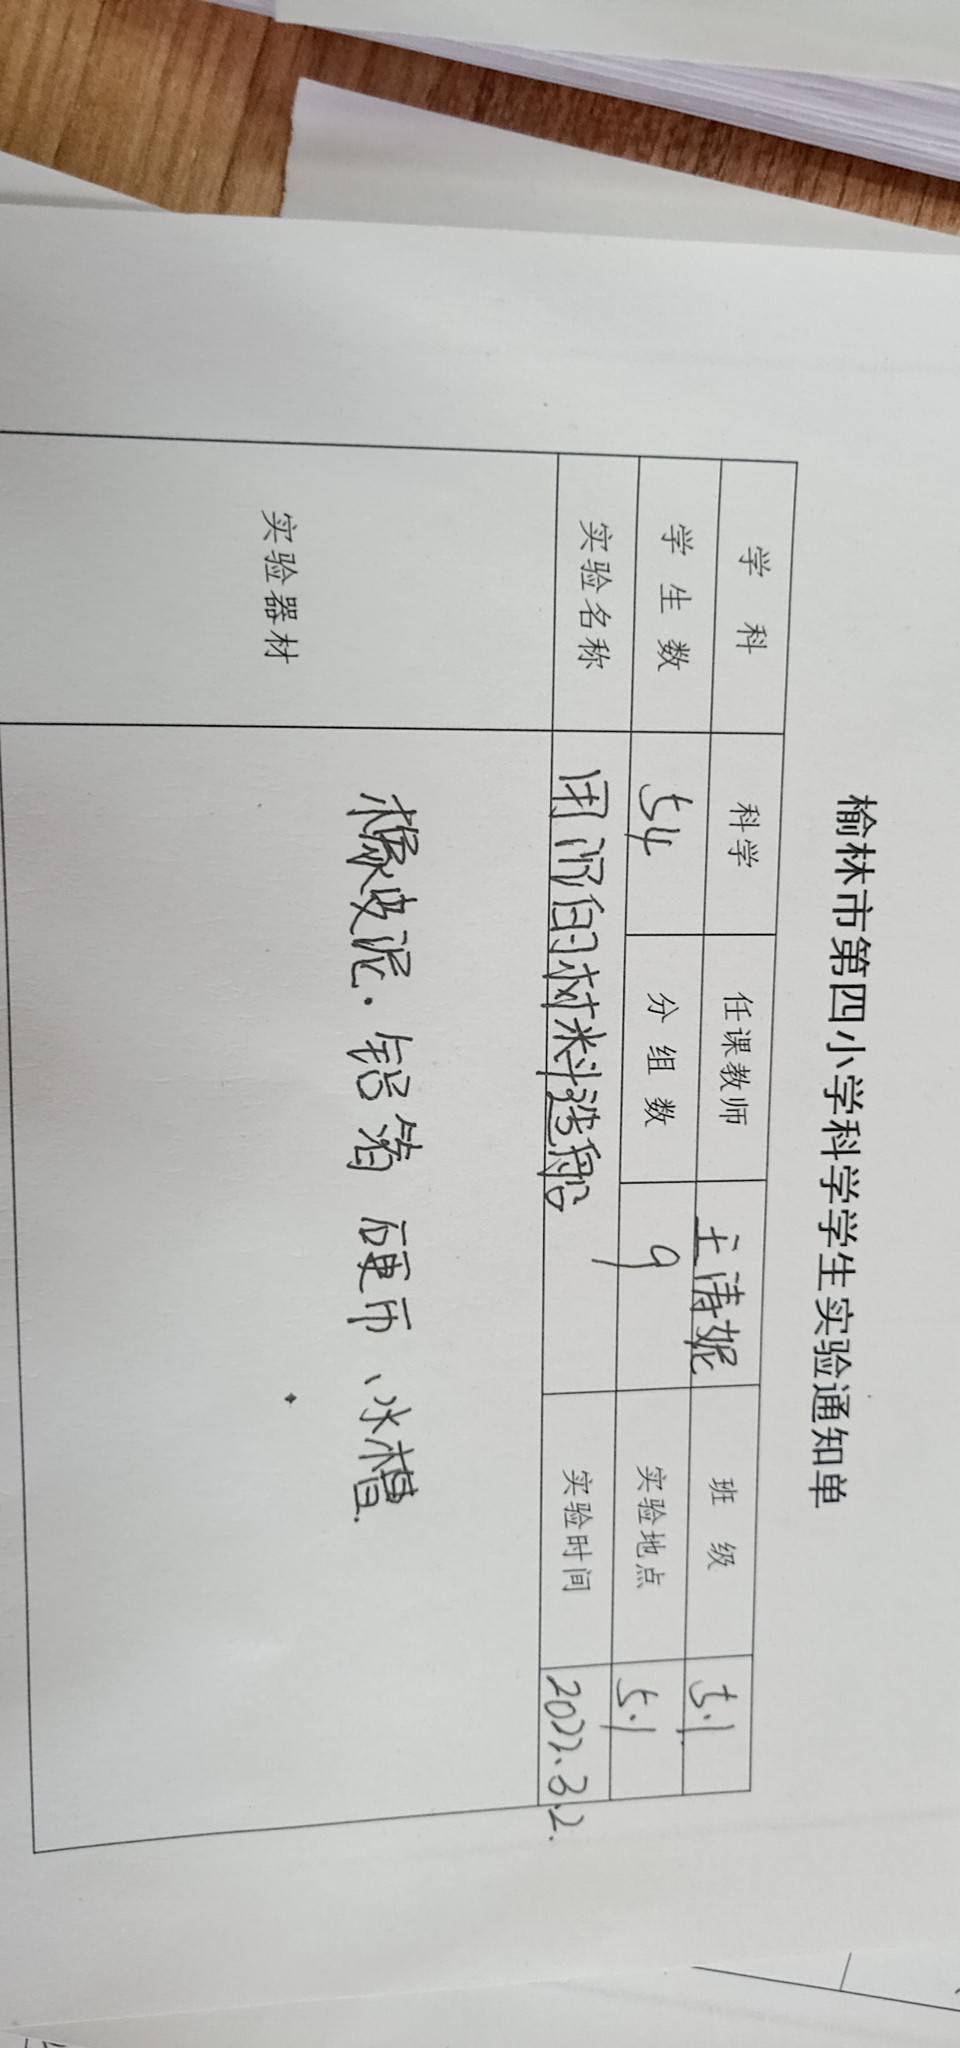 榆林市第四小学科学学生实验通知单
学 科 科学 任课教师 王清妮 班 级 5.1
学 生 数 54 分 组 数 9 实验地点 5.1
实验名称 用沉的材料造船 实验时间 2022.3.2.
实验器材 橡皮泥.铝箔 硬币、水槽.